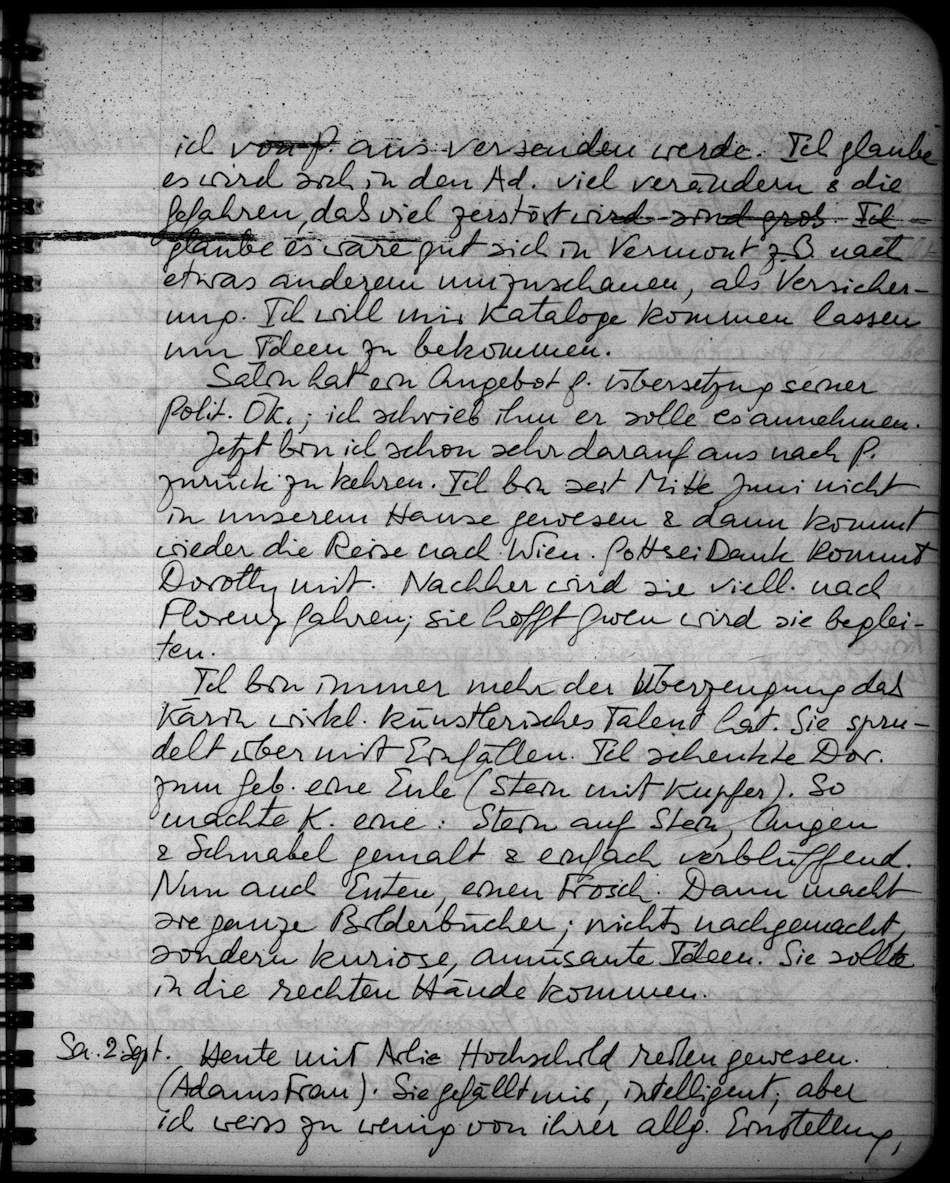 ich von P. aus versenden werde. Ich glaube
es wird sich in den Ad. viel verändern & die
Gefahren, das viel zerstört wird sind gros. Ich
glaube es wäre gut sich in Vermont z.B. nach
etwas anderem umzuschauen, als Versicher-
ung. Ich will mir Kataloge kommen lassen
um Ideen zu bekommen.
Salin hat ein Angebot f. Übersetzung seiner
Polit. Ök.; ich schrieb ihm er solle es annehmen.
Jetzt bin ich schon sehr darauf aus nach P.
zurück zu kehren. Ich bin seit Mitte Juni nicht
in unserem Hause gewesen & dann kommt
wieder die Reise nach Wien. Gottseidank kommt
Dorothy mit. Nachher wird sie viell. nach
Florenz fahren; sie hofft Gwen wird sie beglei-
ten.
Ich bin immer mehr der Überzeugung das
Karin wirkl. künstlerisches Talent hat. Sie spru-
delt über mit Einfällen. Ich schenkte Dor.
zum Geb. eine Eule (Stein mit Kupfer). So
machte K. eine: Stein auf Stein, Augen
& Schnabel gemalt & einfach verblüffend.
Nun auch Enten, einen Frosch. Dann macht
sie ganze Bilderbücher; nichts nachgemacht,
sondern kuriose, amüsante Ideen. Sie sollte
in die rechten Hände kommen.
Sa. 2 Sept. Heute mit Arlie Hochschild reiten gewesen.
(Adams Frau). Sie gefällt mir, intelligent, aber
ich weiss zu wenig von ihrer allg. Einstellung,